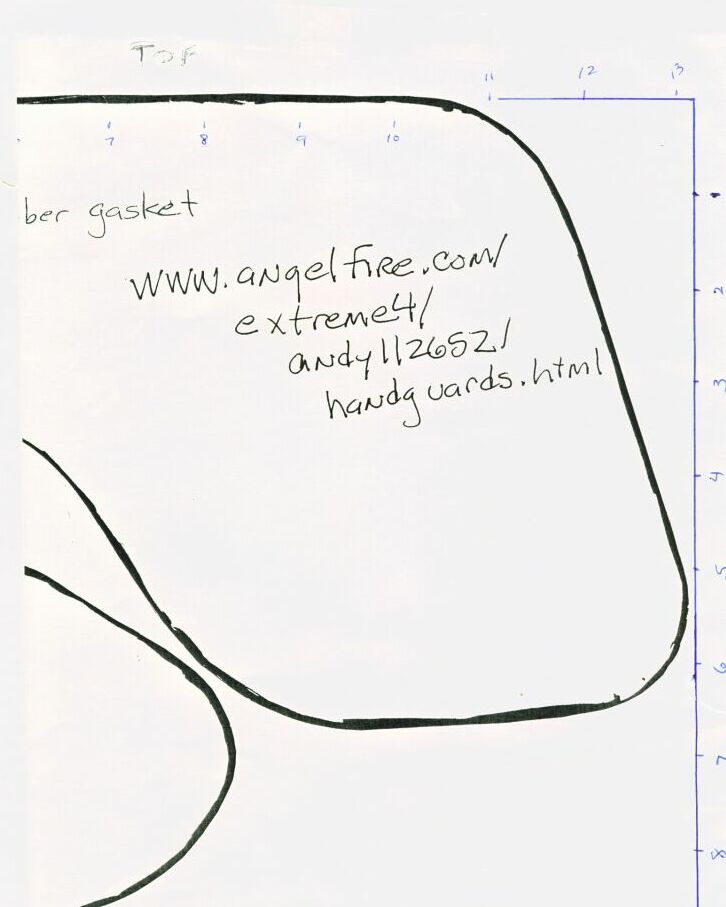 TOP
11 12 13
7 8 9 10
1
ber gasket
www.angelfire.com/
2
extreme4/
andy112652/
handguards.html
3
4
5
6
7
8